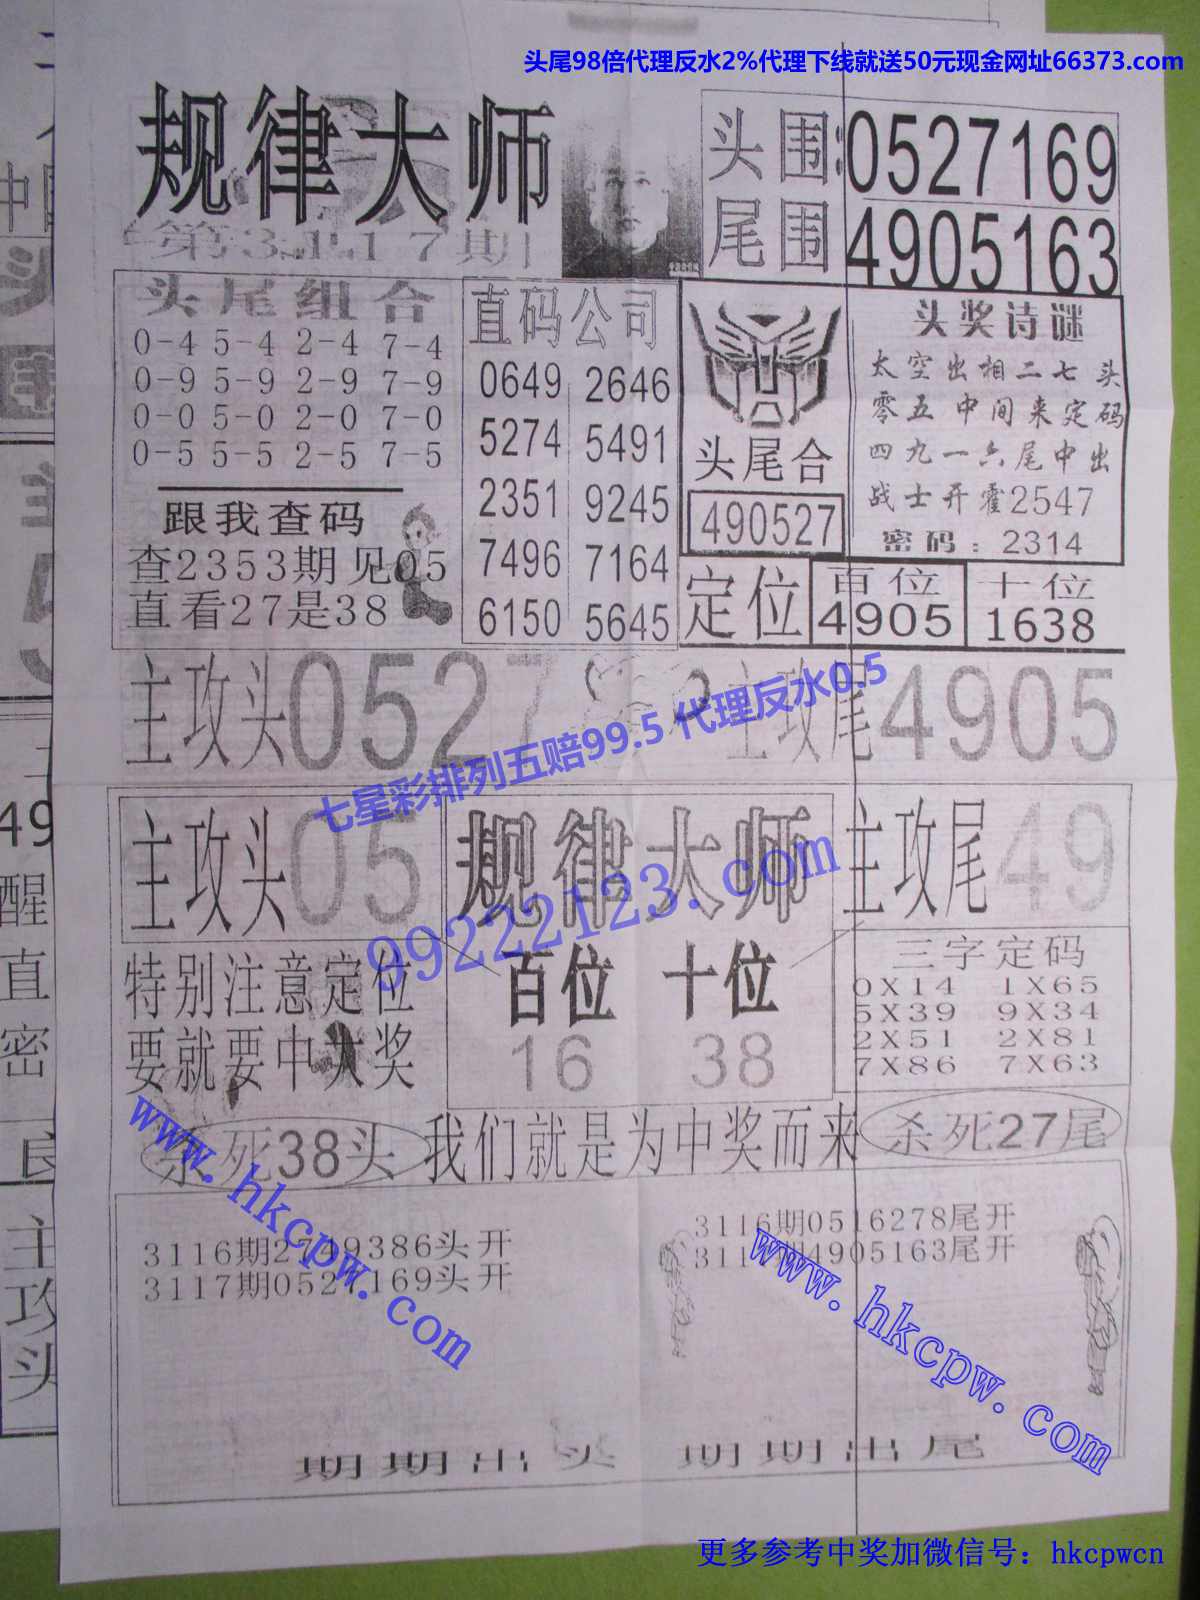 头尾98倍代理反水2%代理下线就送50元现金网址66373.com
规律大师
第3117期
头围:0527169
尾围 4905163
头尾组合
0-4 5-4 2-4 7-4
0-9 5-9 2-9 7-9
0-0 5-0 2-0 7-0
0-5 5-5 2-5 7-5
跟我查码
查2353期见05
直看27是38
直码公司
0649 2646
5274 5491
2351 9245
7496 7164
6150 5645
头尾合
490527
头奖诗谜
太空出相二七头
零五中间来定码
四九一六尾中出
战士开霍2547
密码：2314
定位
百位
4905
十位
1638
主攻头0527
主攻尾4905
七星彩排列五赔99.5 代理反水0.5
主攻头05
规律大师
主攻尾49
99222123.com
特别注意定位
要就要中大奖
百位 十位
16 38
三字定码
0X14 1X65
5X39 9X34
2X51 2X81
7X86 7X63
杀死38头
我们就是为中奖而来
杀死27尾
www.hkcpw.com
3116期2749386头开
3117期0527169头开
3116期0516278尾开
3117期4905163尾开
www.hkcpw.com
期期出头 期期出尾
更多参考中奖加微信号：hkcpwcn
中
头
49
醒
直
密
良
主
攻
头